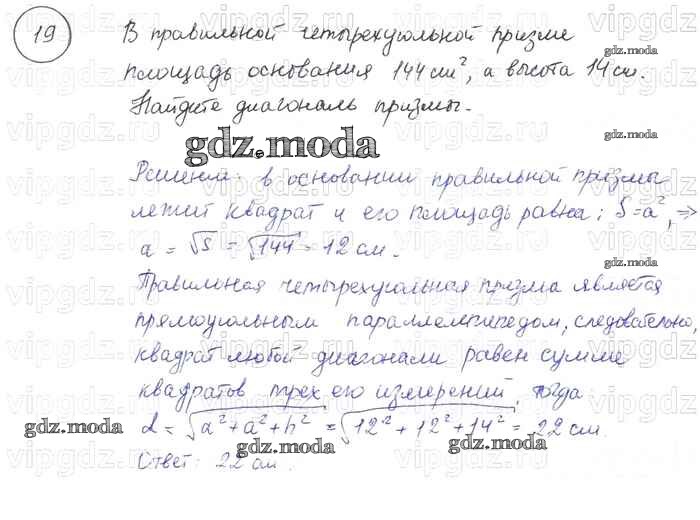 19
В правильной четырехугольной призме
площадь основания 144 см², а высота 14 см.
Найдите диагональ призмы.
gdz.moda
Решение: в основании правильной призмы
лежит квадрат и его площадь равна: S=a², ⇒
a = √S = √144 = 12 см.
Правильная четырехугольная призма является
прямоугольным параллелепипедом, следовательно,
квадрат любой диагонали равен сумме
квадратов трех его измерений, тогда:
d = √a²+a²+h² = √12²+12²+14² = 22 см.
Ответ: 22 см.
gdz.moda
gdz.moda
gdz.moda
gdz.moda
gdz.moda
gdz.moda
gdz.moda